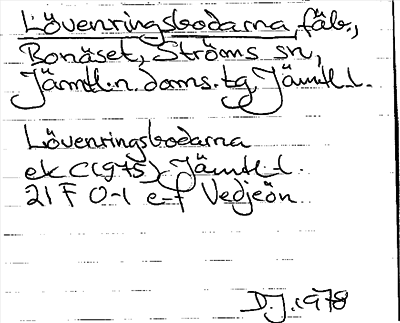 Lövenringsbodarna, fäb.,
Bonäset, Ströms sn,
Jämtl. n. doms. tg, Jämtl. l.
Lövenringsbodarna
ek C(1975) Jämtl. l.
21 F 0-1 e-f Vedjeön
D.J. 1978